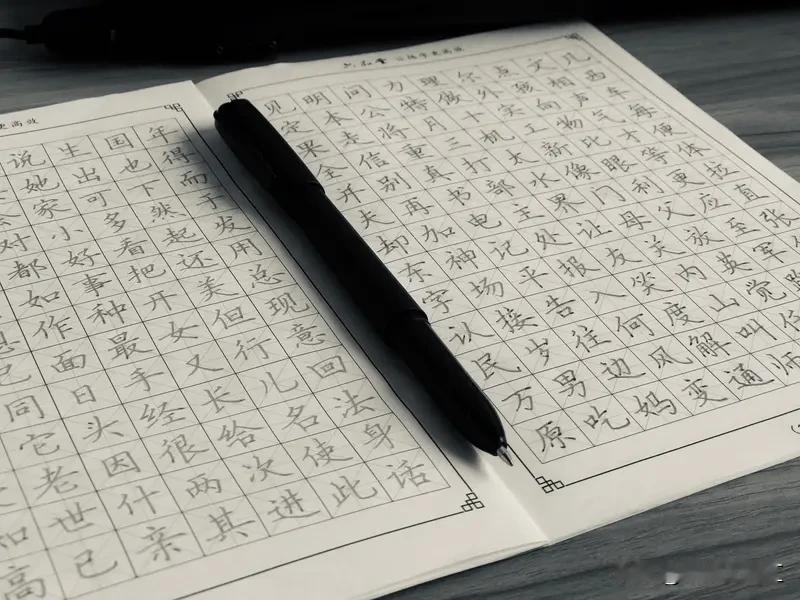 更高效
说生国年
她出也得
家可下而
对小多然于
都好看起发
如事把还用
作种开美总
己面最女但现
同日手又行意
它头经长儿回
老因很给名法
知世什两次使身
高已亲其进此话
六品堂 练字更高效
见明问力理尔点文几
定本公特做外孩相西
果走将月十实向声车
全信重三机工物气每
并别真打太新比才便
夫再书部水像眼等体
却加电主界门利更拉
东神记处让母父应直
字场平报友关放至张
认接告入笑内英军
民岁往何度山觉路
万男边风解叫任
原吃妈变通师